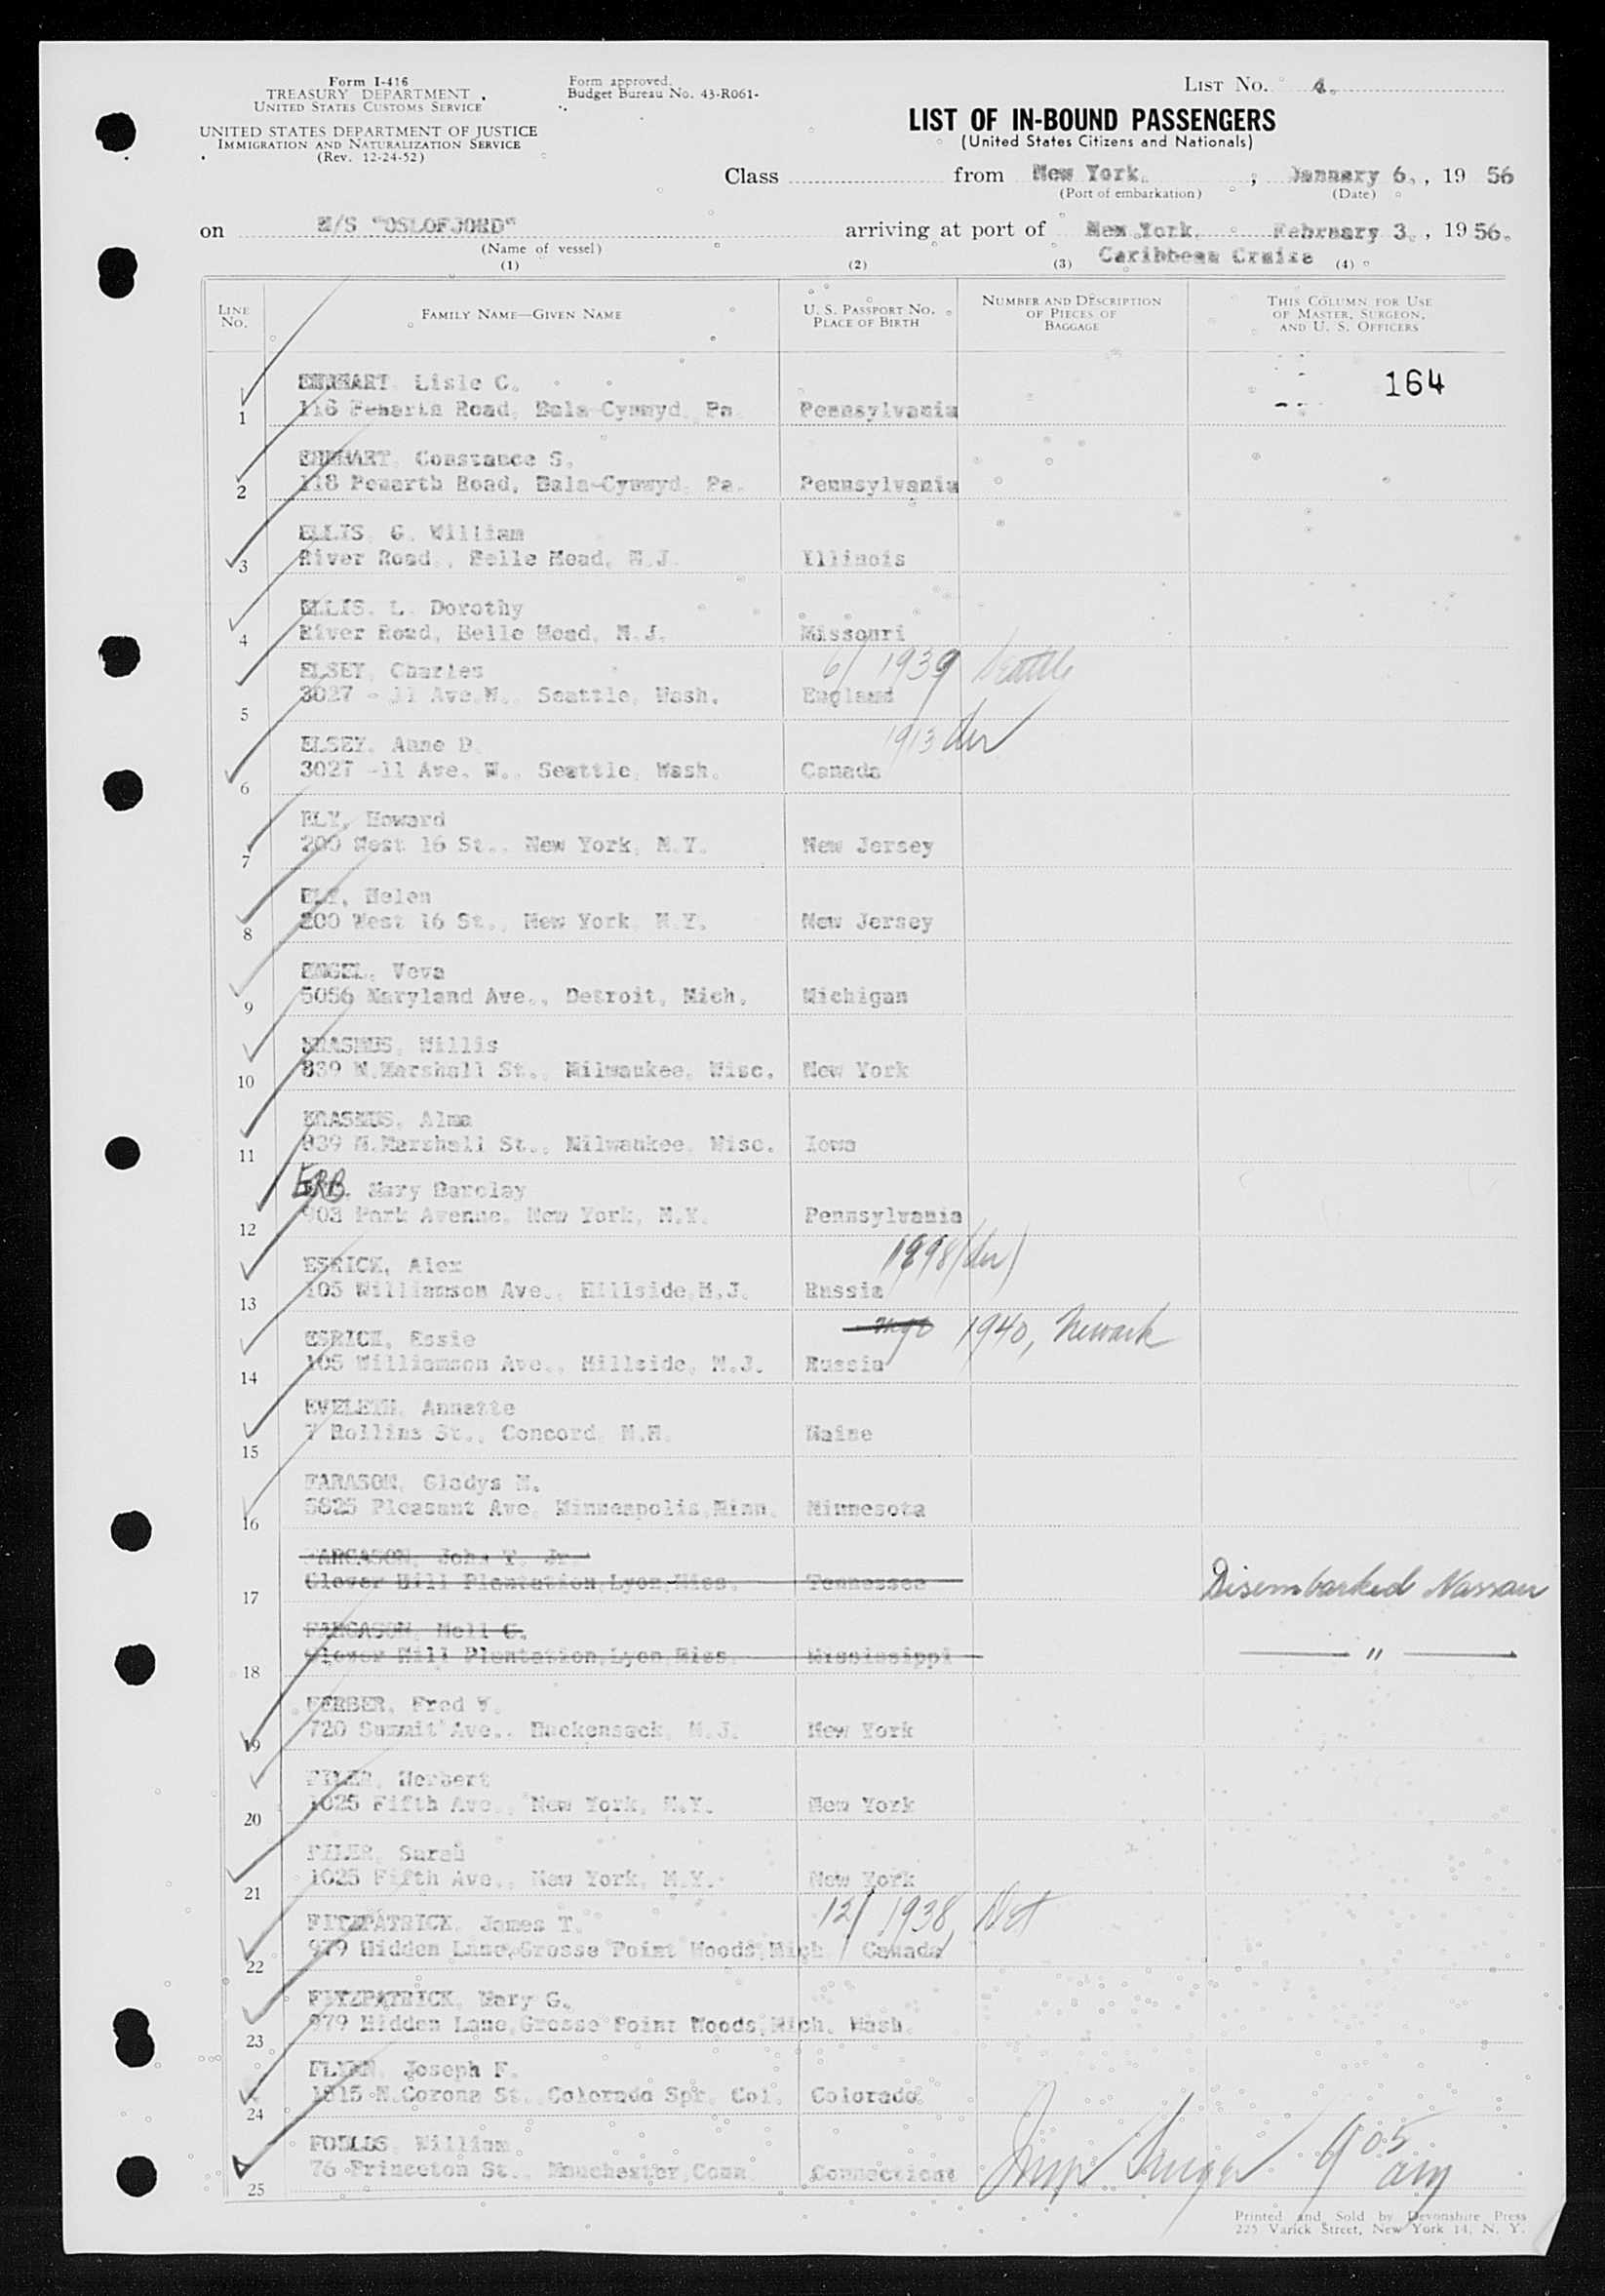 Form I-416
TREASURY DEPARTMENT
UNITED STATES CUSTOMS SERVICE
UNITED STATES DEPARTMENT OF JUSTICE
IMMIGRATION AND NATURALIZATION SERVICE
(Rev. 12-24-52)
Form approved.
Budget Bureau No. 43-R061-
LIST No. 4.
LIST OF IN-BOUND PASSENGERS
(United States Citizens and Nationals)
Class from New York, , January 6, , 19 56
(Port of embarkation) (Date)
on M/S "OSLOFJORD" arriving at port of New York, February 3, , 19 56.
(Name of vessel) Caribbean Cruise
(1) (2) (3) (4)
LINE No. FAMILY NAME—GIVEN NAME U. S. PASSPORT NO. PLACE OF BIRTH NUMBER AND DESCRIPTION OF PIECES OF BAGGAGE THIS COLUMN FOR USE OF MASTER, SURGEON, AND U. S. OFFICERS
164
EHRHART, Lisle C.
1 Road, Bala-Cynwyd, Pa. Pennsylvania
EHRHART, Constance S.
2 118 Penarth Road, Bala-Cynwyd, Pa. Pennsylvania
ELLIS, G. William
3 River Road., Belle Mead, N.J. Illinois
ELLIS, L. Dorothy
4 River Road, Belle Mead, N.J. Missouri
ELSEY, Charles 6/ 1939 Seattle
5 3027 - 11 Ave.W., Seattle, Wash. England
ELSEY, Anne D. 1913 der
6 3027 -11 Ave. W., Seattle, Wash. Canada
ELY, Howard
7 200 West 16 St., New York, N.Y. New Jersey
ELY, Helen
8 200 West 16 St., New York, N.Y. New Jersey
ENGEL, Veva
9 5056 Maryland Ave., Detroit, Mich. Michigan
ERASMUS, Willis
10 839 N.Marshall St., Milwaukee, Wisc. New York
ERASMUS, Alma
11 839 N.Marshall St., Milwaukee, Wisc. Iowa
ERB, Mary Barclay
12 903 Park Avenue, New York, N.Y. Pennsylvania
ESRICK, Alex 1898 (der)
13 105 Williamson Ave., Hillside,N.J. Russia
ESRICK, Essie 1940, Newark
14 105 Williamson Ave., Hillside, N.J. Russia
EVELETH, Annette
15 7 Rollins St., Concord, N.H. Maine
FARASON, Gladys M.
16 5825 Pleasant Ave, Minneapolis,Minn. Minnesota
FARGASON, John T. Jr.
17 Clover Hill Plantation,Lyon,Miss. Tennessee Disembarked Nassau
FARGASON, Nell G.
18 Clover Hill Plantation,Lyon,Miss. Mississippi — " —
FERBER, Fred W.
19 720 Summit Ave., Hackensack, N.J. New York
FILER, Herbert
20 1025 Fifth Ave., New York, N.Y. New York
FILER, Sarah
21 1025 Fifth Ave., New York, N.Y. New York
FITZPATRICK, James T. 12/ 1938, Det
22 979 Hidden Lane,Grosse Point Woods,Mich. Canada
FITZPATRICK, Mary G.
23 979 Hidden Lane,Grosse Point Woods,Mich. Wash.
FLYNN, Joseph F.
24 1815 N.Corona St., Colorado Spr. Col. Colorado
William
25 76 Princeton St., Manchester,Conn. Connecticut
9 05 am
Printed and Sold by Devonshire Press
225 Varick Street, New York 14, N. Y.